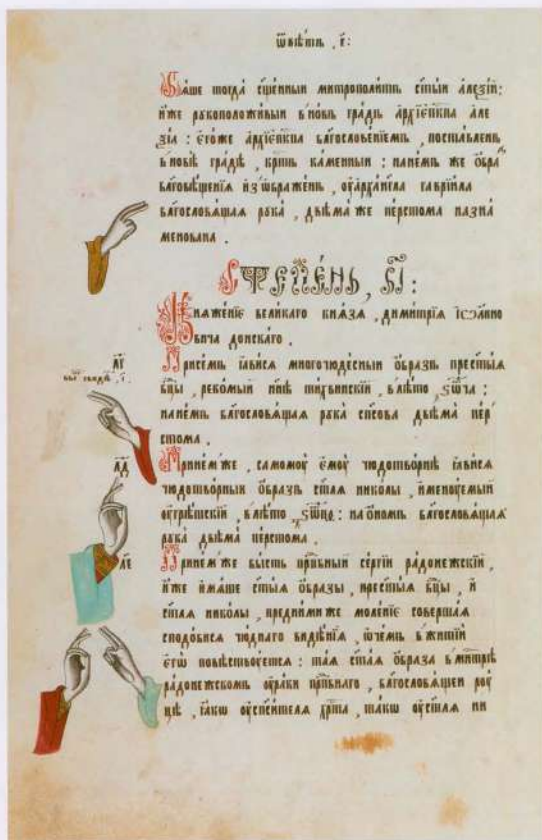 ѿвѣтъ , є҃:
Бяше тогда сщ҃енныи митрополитъ ст҃ыи алеѯій:
иже рукоположивыи в новъ градъ архіеп҃кпа але
ѯіа : егоже архіеп҃кпа бл҃гословеніемъ , поставленъ
в новѣ градѣ , кр҃тъ каменныи : на немъ же ѡбра
бл҃говѣщенія изѡбраженъ , оу архангла гавріила
бл҃гословящая рука , двѣма же перстома назна
менована .
Степень, в҃і:
Княженіе великаго князя , димитрія іѡанно
вича донскаго .
При семъ явися многочюдесныи ѡбразъ прест҃ыя
бц҃ы , рекомый нн҃ѣ тихвинскій , в лѣто , ѕѡ҃ча :
на немъ бл҃гословящая рука сп҃сова двѣма пер
стома .
При нем же , самомоу емоу чюдотворнѣ явися
чюдотворныи ѡбразъ ст҃ая николы , именоуемый
оугрѣшскій , в лѣто : на ономъ бл҃гословящая
рука двѣма перстома .
При нем же бысть прп҃бный сергій радонежскій ,
иже имяше ст҃ыя ѡбразы , прест҃ыя бц҃ы , и
ст҃ая николы , пред ними же моленіе совершая
сподобися чюднаго видѣнія , ѡ чемъ в житіи
егѡ повѣствоуется : тая ст҃ая ѡбраза в м҃нтрѣ
радонежскомъ оу раки прп҃бнаго , бл҃гословящеи роу
цѣ , такѡ оу спсителя хр҃та , такѡ оу ст҃ая ни
л҃г
л҃д
л҃е